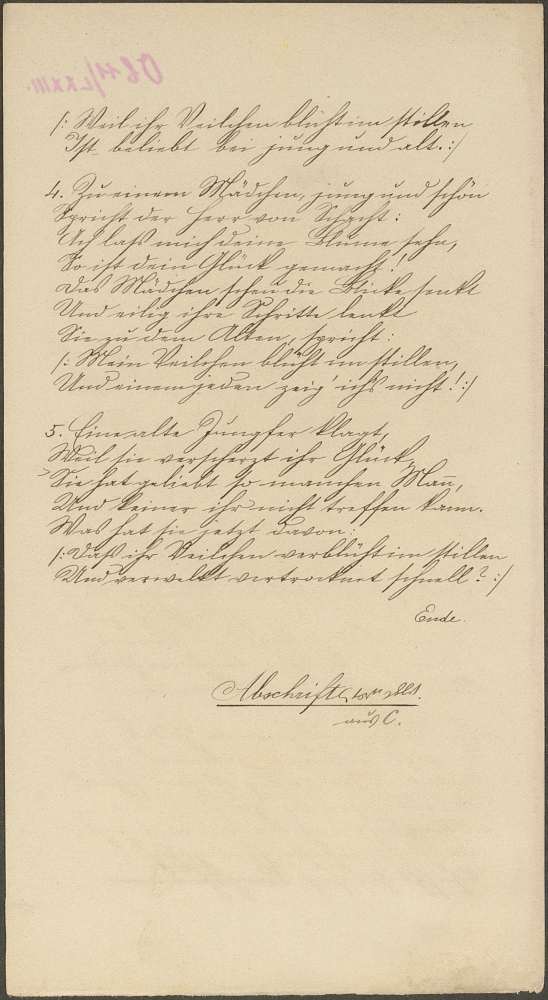 /: Weil ihr Veilchen blüht im stillen
Ist beliebt bei jung und alt. :/
4. Zu einem Mädchen, jung und schön
Spricht der Herr von Schacht:
Ach laß mich deine Blume sehn,
So ist dein Glück gemacht!
Das Mädchen scheu die Blicke senkt
Und eilig ihre Schritte lenkt
Sie zu dem Alten, spricht:
/: Mein Veilchen blüht im stillen,
Und einem jeden zeig' ich's nicht! :/
5. Eine alte Jungfer klagt,
Weil sie verscherzt ihr Glück,
Sie hat geliebt so manchen Mañ,
Und keiner ihr nicht treffen kann.
Was hat sie jetzt davon:
/: Daß ihr Veilchen verblüht im stillen
Und verwelkt vertrocknet schnell? :/
Ende.
Abschrift
aus C.